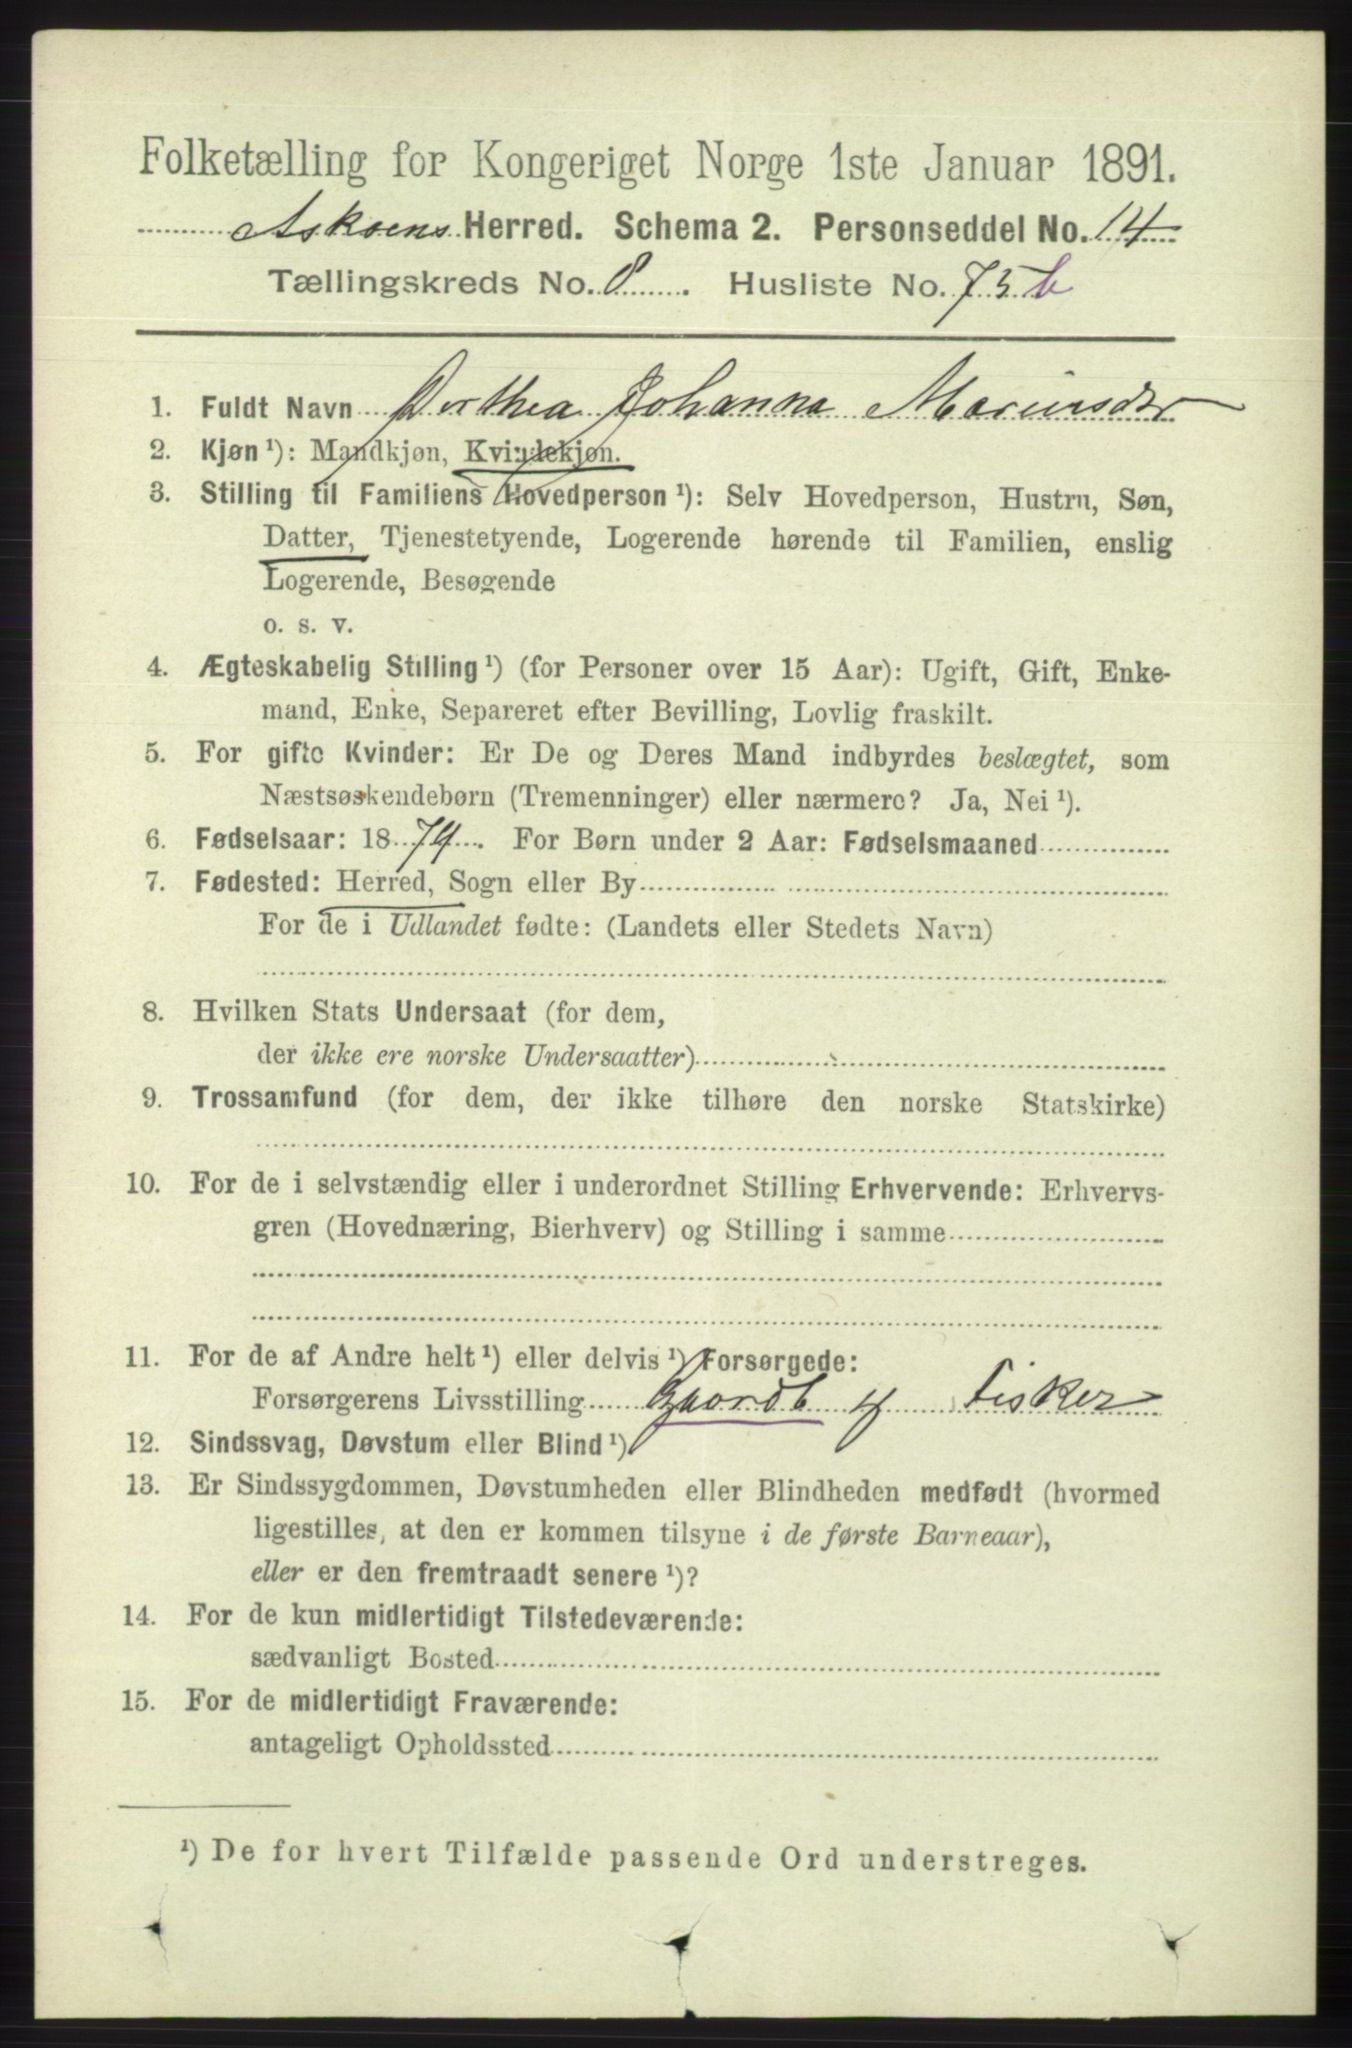 Folketælling for Kongeriget Norge 1ste Januar 1891.
Askøens Herred. Schema 2. Personseddel No. 14
Tællingskreds No. 8. Husliste No. 75 b
1. Fuldt Navn Dorthea Johanna Mariusdtr
2. Kjøn ¹): Mandkjøn, Kvindekjøn.
3. Stilling til Familiens Hovedperson ¹): Selv Hovedperson, Hustru, Søn,
Datter, Tjenestetyende, Logerende hørende til Familien, enslig
Logerende, Besøgende
o. s. v.
4. Ægteskabelig Stilling ¹) (for Personer over 15 Aar): Ugift, Gift, Enke-
mand, Enke, Separeret efter Bevilling, Lovlig fraskilt.
5. For gifte Kvinder: Er De og Deres Mand indbyrdes beslægtet, som
Næstsøskendebørn (Tremenninger) eller nærmere? Ja, Nei ¹).
6. Fødselsaar: 1874. For Børn under 2 Aar: Fødselsmaaned
7. Fødested: Herred, Sogn eller By
For de i Udlandet fødte: (Landets eller Stedets Navn)
8. Hvilken Stats Undersaat (for dem,
der ikke ere norske Undersaatter)
9. Trossamfund (for dem, der ikke tilhøre den norske Statskirke)
10. For de i selvstændig eller i underordnet Stilling Erhvervende: Erhvervs-
gren (Hovednæring, Bierhverv) og Stilling i samme
11. For de af Andre helt ¹) eller delvis ¹) Forsørgede:
Forsørgerens Livsstilling Gaardb og Fisker
12. Sindssvag, Døvstum eller Blind ¹)
13. Er Sindssygdommen, Døvstumheden eller Blindheden medfødt (hvormed
ligestilles, at den er kommen tilsyne i de første Barneaar),
eller er den fremtraadt senere ¹)?
14. For de kun midlertidigt Tilstedeværende:
sædvanligt Bosted
15. For de midlertidigt Fraværende:
antageligt Opholdssted
¹) De for hvert Tilfælde passende Ord understreges.